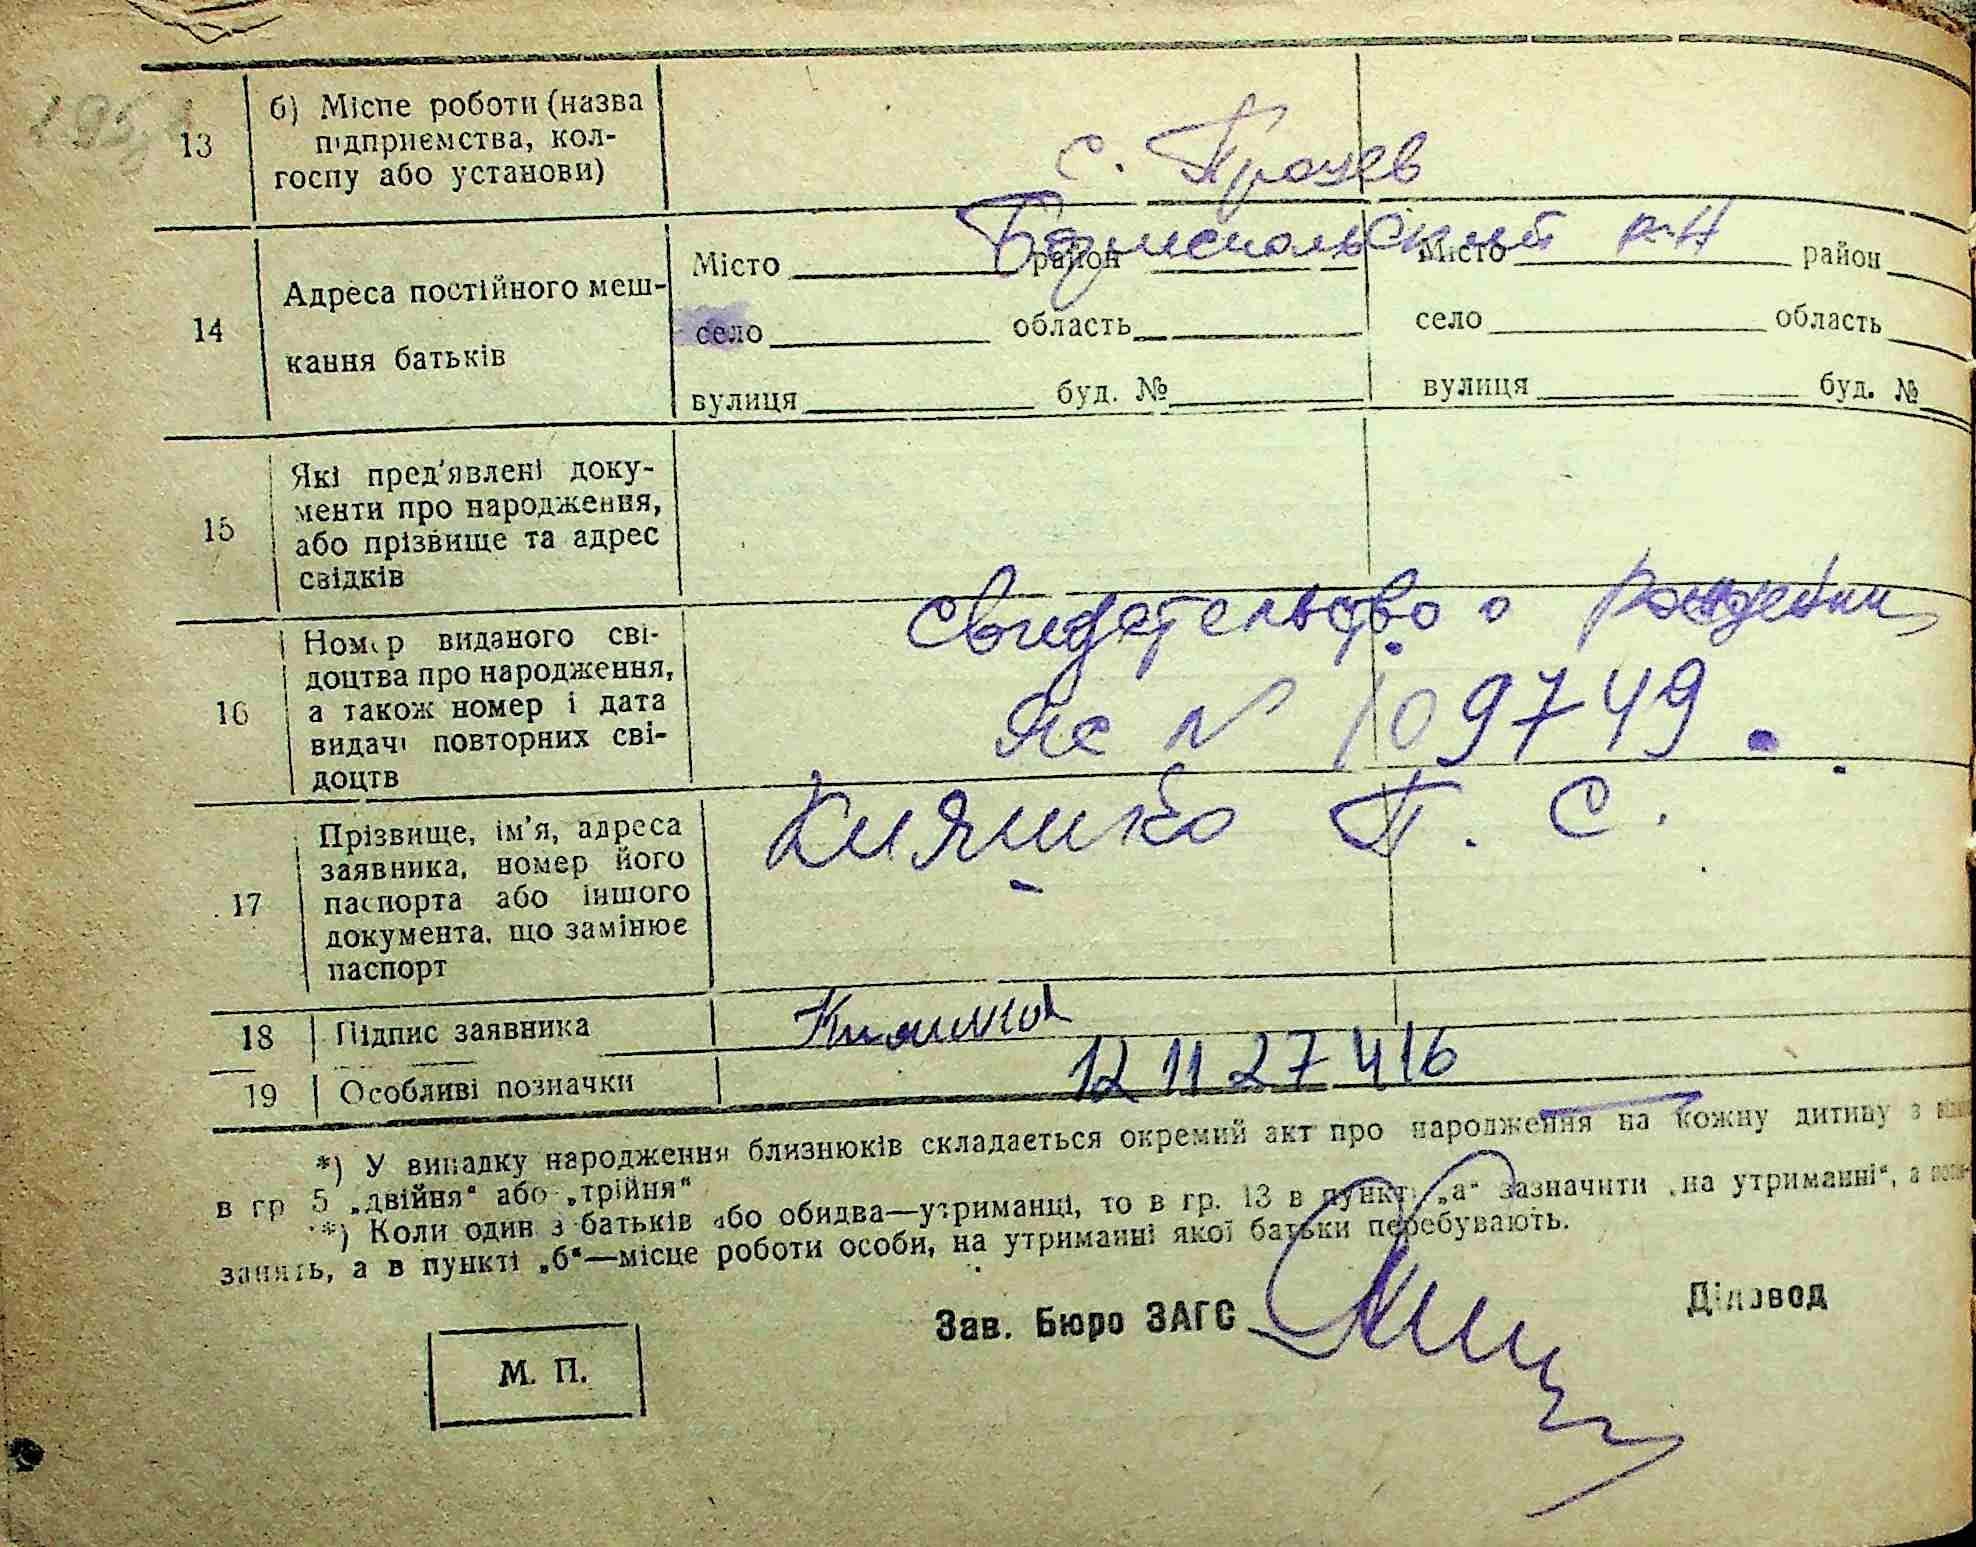 13
б) Місце роботи (назва
підприємства, кол-
госпу або установи)
с. Процев
Бориспольский р-н
14
Адреса постійного меш-
кання батьків
Місто район Місто район
село область село область
вулиця буд. № вулиця буд. №
15
Які пред'явлені доку-
менти про народження,
або прізвище та адрес
свідків
16
Номер виданого сві-
доцтва про народження,
а також номер і дата
видачі повторних сві-
доцтв
свидетельство о рождении
яс N 109749.
17
Прізвище, ім'я, адреса
заявника, номер його
паспорта або іншого
документа, що замінює
паспорт
Кияшко П. С.
18 Підпис заявника
19 Особливі позначки
12 11 27 416
*) У випадку народження близнюків складається окремий акт про народження на кожну дитину з
в гр 5 „двійня“ або „трійня“
**) Коли один з батьків або обидва—утриманці, то в гр. 13 в пункті „а“ зазначити „на утриманні“, а
занять, а в пункті „б“—місце роботи особи, на утриманні якої батьки перебувають.
Зав. Бюро ЗАГС
Діловод
М. П.